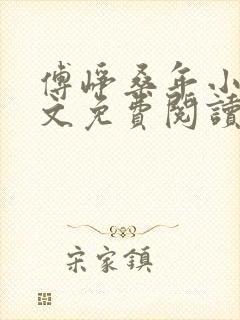 傅崢桑年小
文免費閱讀
宋家鎮